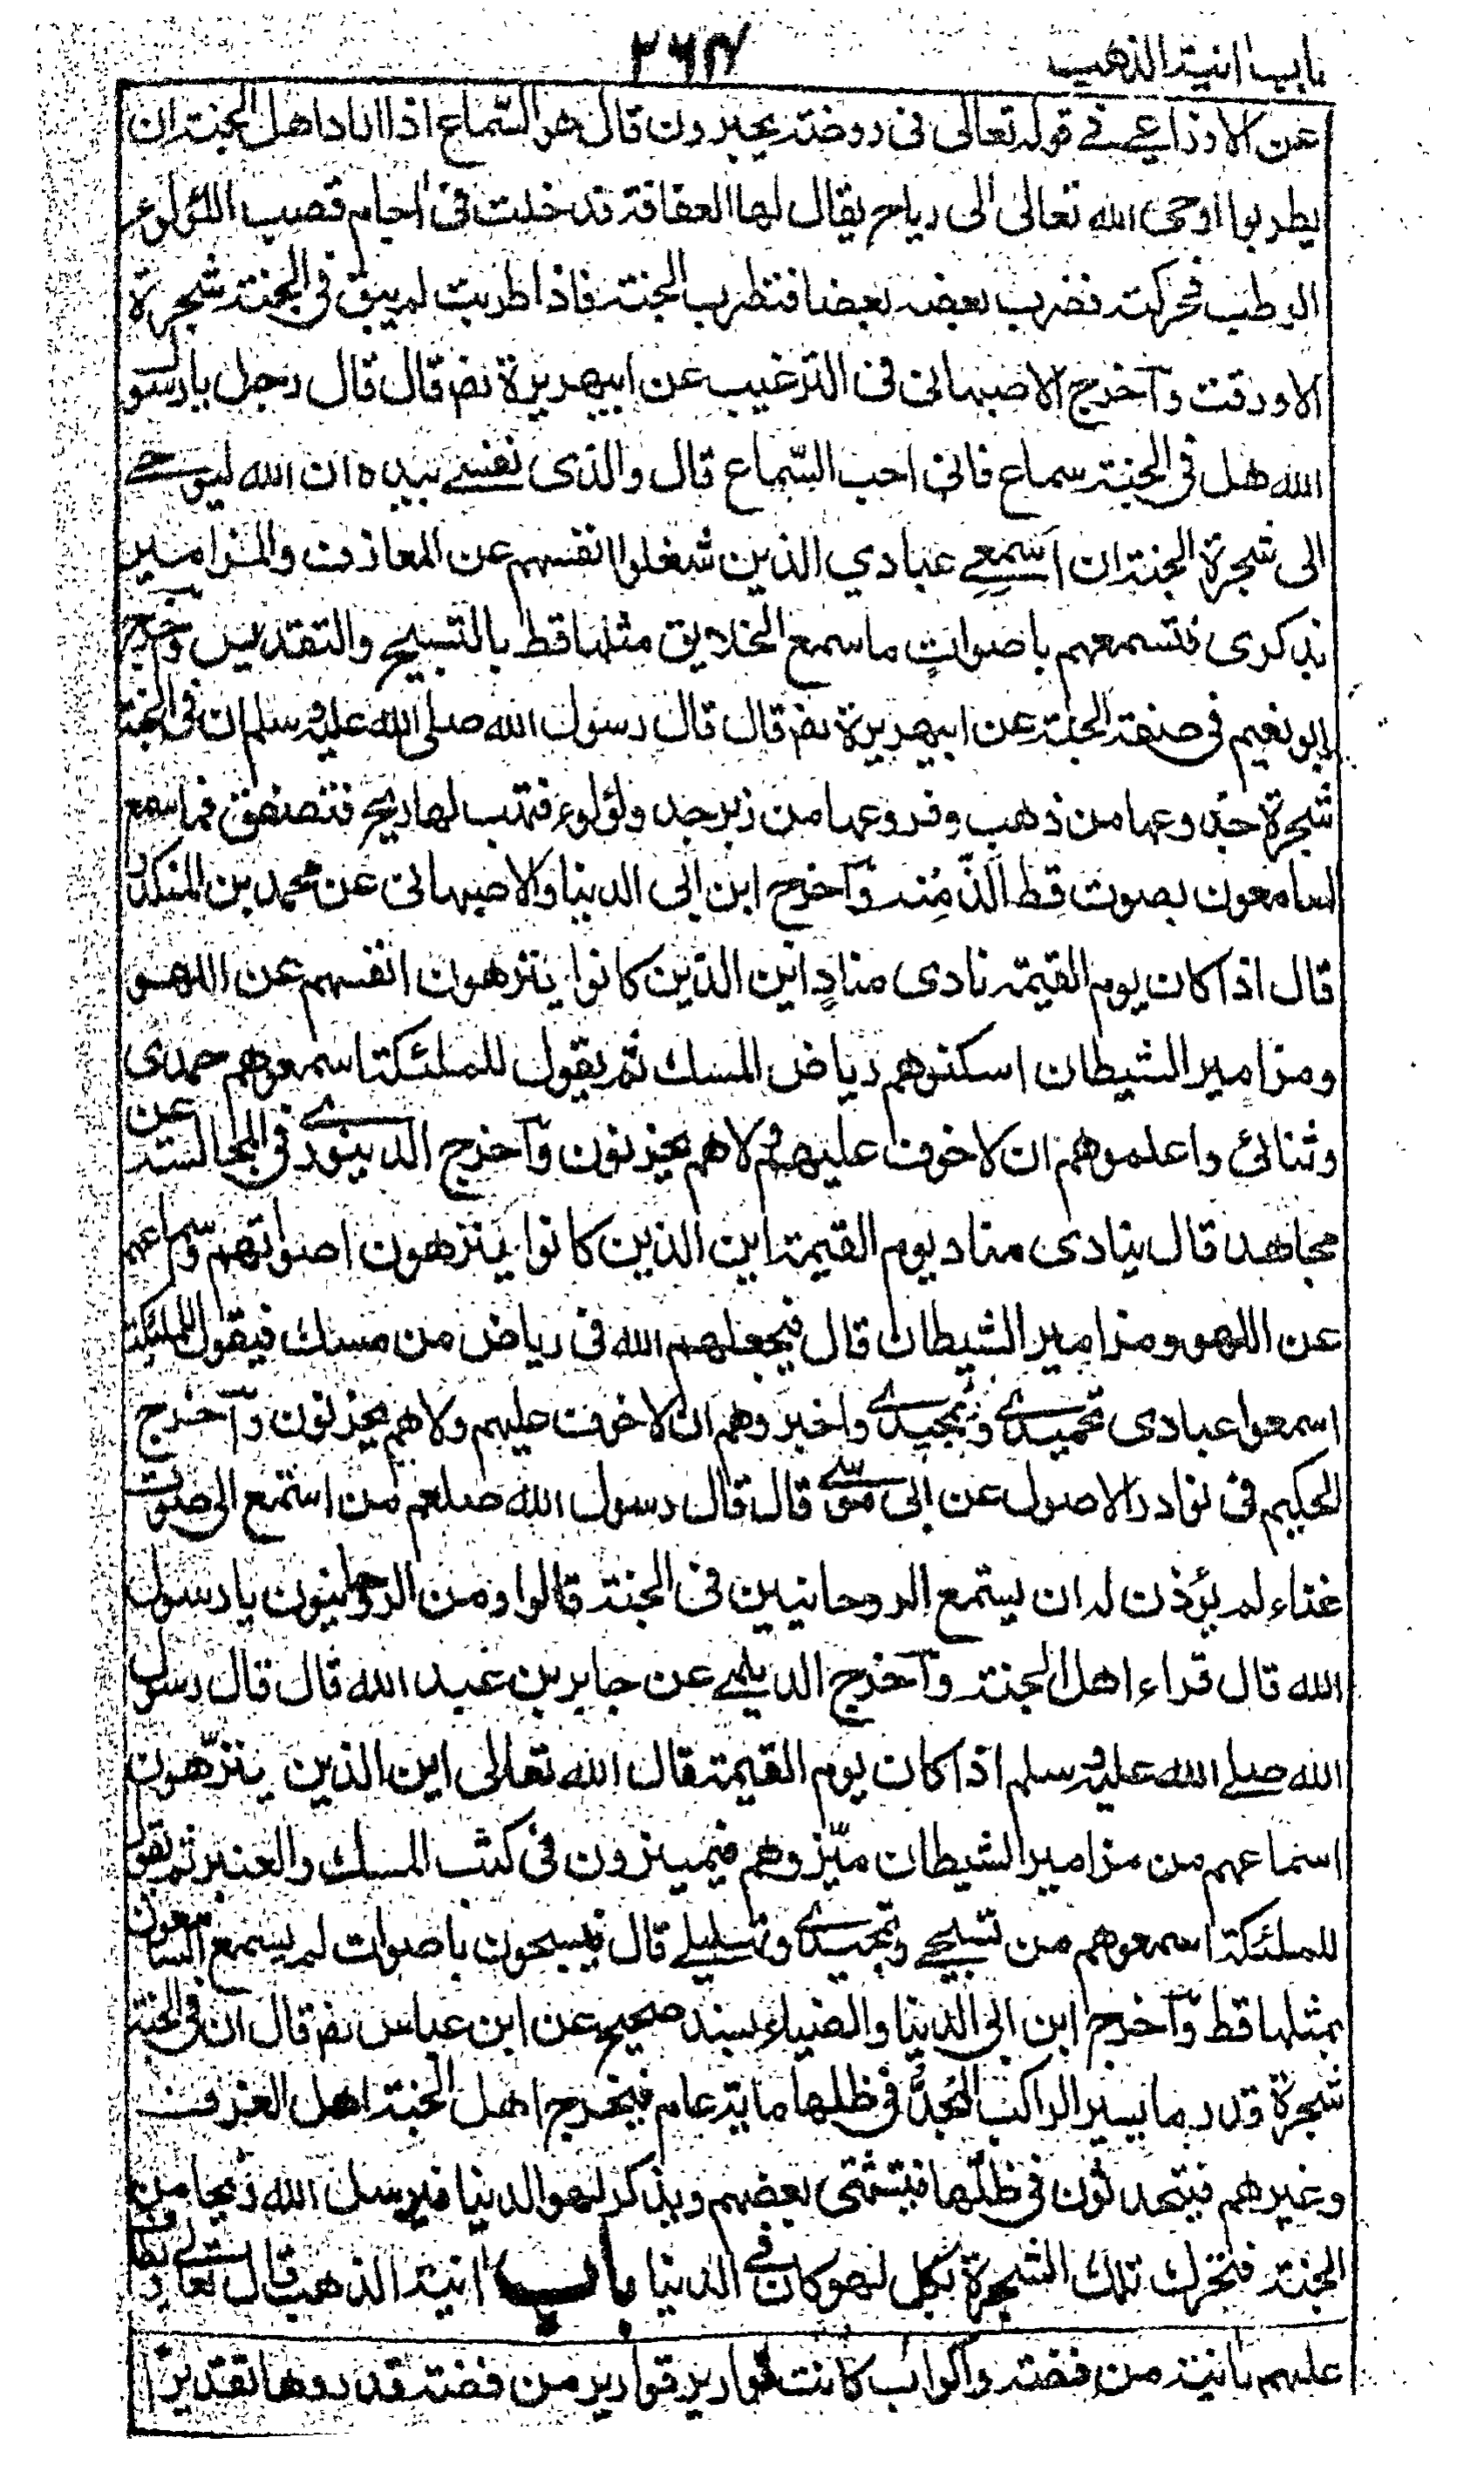 باب انية الذهب
٢٦٣
عن الاوزاعي في قوله تعالى فى روضة يحبرون قال هو السّماع اذا اراد اهل الجنة ان
يطربوا اوحى الله تعالى الى رياح يقال لها العفافة فدخلت فى اجام قصب اللؤلوء
الرطب فحركته فضرب بعضه بعضا فتطرب الجنة فاذا طربت لم يبق فى الجنة شجرة
الا ورقت وآخرج الاصبهانى فى الترغيب عن ابيهريرة رضـ قال قال رجل يا رسول
الله هل فى الجنة سماع فانى احب السّماع قال والذى نفسے بيده ان الله ليوحے
الى شجرة الجنة ان اسمعے عبادي الذين شغلوا انفسهم عن المعازف والمزامير
بذكرى فتسمعهم باصواتٍ ما سمع الخلايق مثلها قط بالتسبيح والتقديس واخرج
ابو نعيم فى صفة الجنة عن ابيهريرة رضـ قال قال رسول الله صلى الله عليه وسلم ان فى الجنة
شجرة جذوعها من ذهب وفروعها من زبرجد ولؤلوء فتهب لها ريح فتصفق فما سمع
السامعون بصوت قط الَذّ مِنه وآخرج ابن ابى الدنيا والاصبهانى عن محمد بن المنكدر
قال اذا كان يوم القيمة نادى منادٍ اين الذين كانوا ينزهون انفسهم عن اللهو
ومزامير الشيطان اسكنوهم رياض المسك ثم يقول للملئكة اسمعوهم حمدى
وثنائى واعلموهم ان لا خوف عليهم ولا هم يحزنون وآخرج الدينورے فى المجالسة عن
مجاهد قال ينادى مناد يوم القيمة اين الذين كانوا ينزهون اصواتهم وسماعهم
عن اللهو ومزامير الشيطان قال فيجعلهم الله فى رياض من مسك فيقول للملئكة
اسمعوا عبادى تحميدے وتمجيدے واخبروهم ان لا خوف عليهم ولا هم يحزنون وآخرج
الحكيم فى نوادر الاصول عن ابى موسے قال قال رسول الله صلعم من استمع الى صوت
غناء لم يؤذن له ان يستمع الروحانيين فى الجنة قالوا ومن الروحانيون يا رسول
الله قال قراء اهل الجنة وآخرج الديلمے عن جابر بن عبد الله قال قال رسول
الله صلے الله عليه وسلم اذا كان يوم القيمة قال الله تعالى اين الذين ينزّهون
اسماعهم من مزامير الشيطان ميّزوهم فيميزون فى كثب المسك والعنبر ثم يقول
للملئكة اسمعوهم من تسبيحے وتمجيدے وتهليلے قال فيسبحون باصوات لم يسمع السامعون
بمثلها قط وآخرج ابن ابى الدنيا والضياء بسند صحيح عن ابن عباس رضـ قال ان فى الجنة
شجرة قدر ما يسير الراكب المُجدُّ فى ظلها ماية عام فيخرج اهل الجنة اهل الغرف
وغيرهم فيتحدثون فى ظلّها فيشتهى بعضهم ويذكر لهو الدنيا فيرسل الله ريحا من
الجنة فتحرك تلك الشجرة بكل لهو كان فے الدنيا باب انية الذهب قال تعالے يطاف
عليهم بانية من فضة واكواب كانت قوارير قوارير من فضة قدروها تقديرا